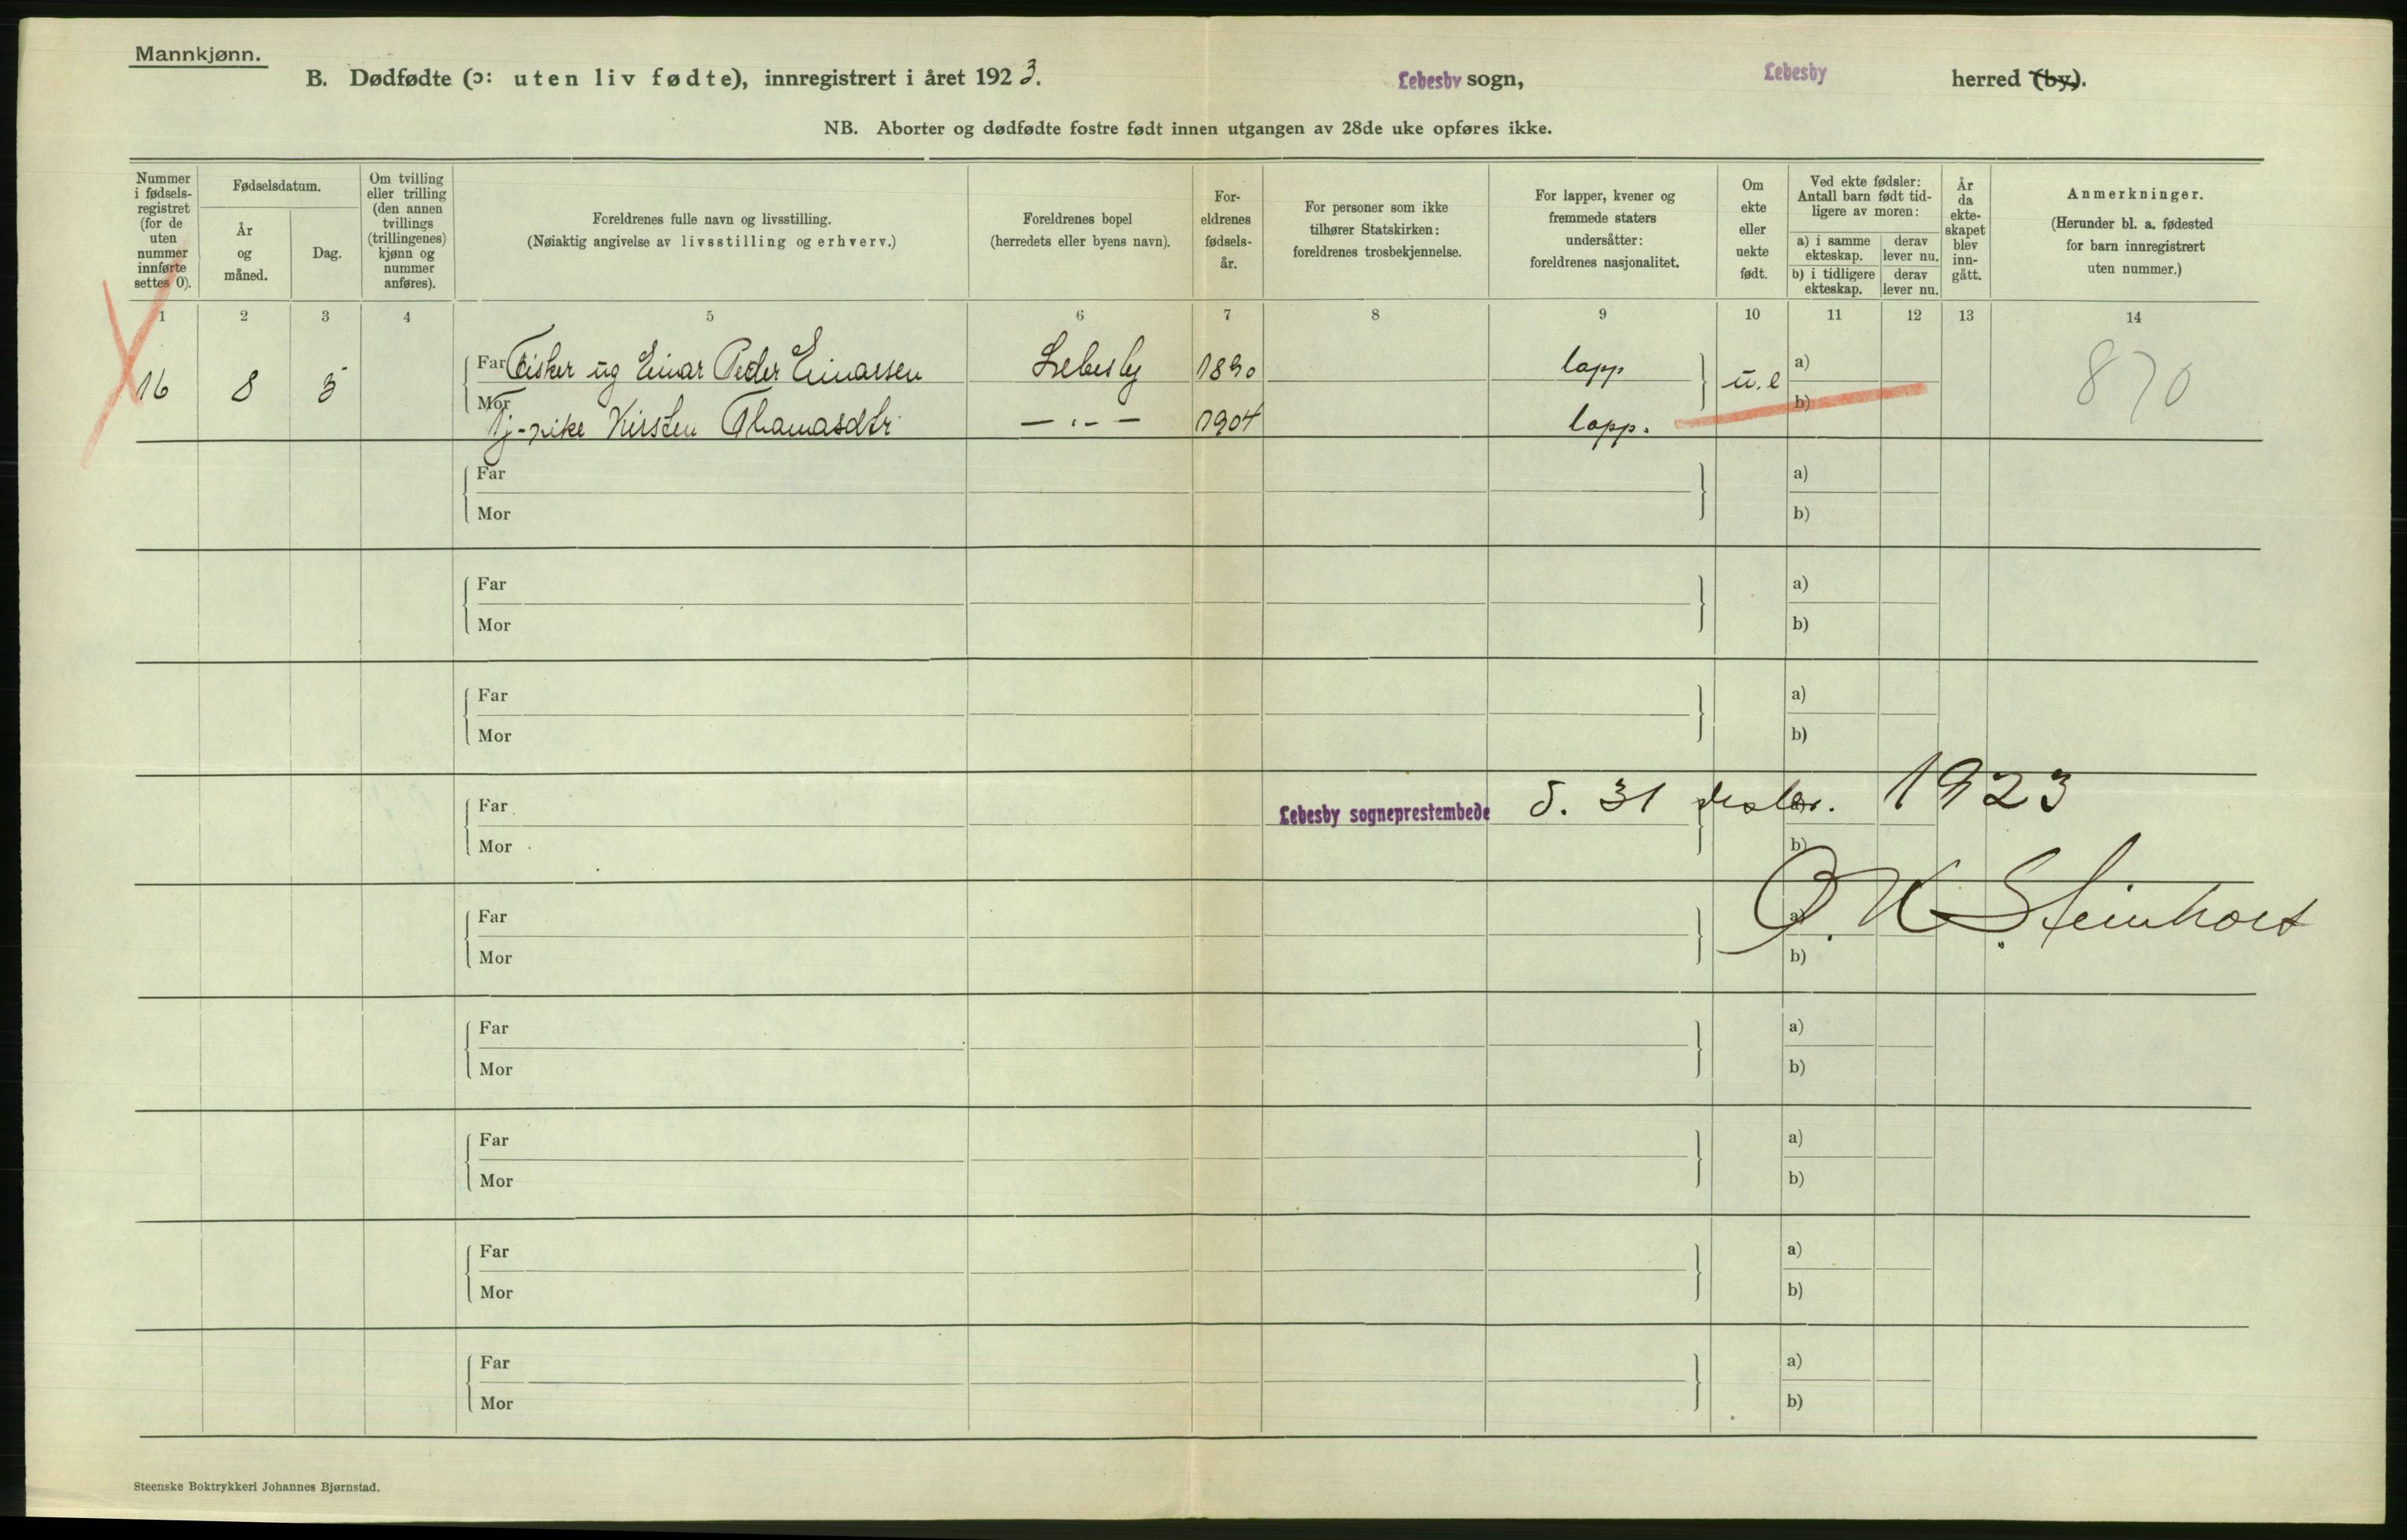 Mannkjønn.
B. Dødfødte (ɔ: uten liv fødte), innregistrert i året 1923.
Lebesby sogn,
Lebesby
herred (by).
NB. Aborter og dødfødte fostre født innen utgangen av 28de uke opføres ikke.
Nummer
i fødsels-
registret
(for de
uten
nummer
innførte
settes 0).
Fødselsdatum.
År
og
måned.
Dag.
Om tvilling
eller trilling
(den annen
tvillings
(trillingenes)
kjønn og
nummer
anføres).
Foreldrenes fulle navn og livsstilling.
(Nøiaktig angivelse av livsstilling og erhverv.)
Foreldrenes bopel
(herredets eller byens navn).
For-
eldrenes
fødsels-
år.
For personer som ikke
tilhører Statskirken:
foreldrenes trosbekjennelse.
For lapper, kvener og
fremmede staters
undersåtter:
foreldrenes nasjonalitet.
Om
ekte
eller
uekte
født.
Ved ekte fødsler:
Antall barn født tid-
ligere av moren:
a) i samme
ekteskap.
derav
lever nu.
b) i tidligere
ekteskap.
derav
lever nu.
År
da
ekte-
skapet
blev
inn-
gått.
Anmerkninger.
(Herunder bl. a. fødested
for barn innregistrert
uten nummer.)
1 2 3 4 5 6 7 8 9 10 11 12 13 14
16 8 5
Far Fisker ug Einar Peder Einarsen Lebesby 1890 lapp u.e a) 870
Mor Tj-pike Kirsten Thomasdtr — „ — 1904 lapp. b)
Far a)
Mor b)
Far a)
Mor b)
Far a)
Mor b)
Far Lebesby sogneprestembede d. 31 desbr. 1923 a)
Mor b)
O. K. Steinholt
Far a)
Mor b)
Far a)
Mor b)
Far a)
Mor b)
Far a)
Mor b)
Far a)
Mor b)
Steenske Boktrykkeri Johannes Bjørnstad.